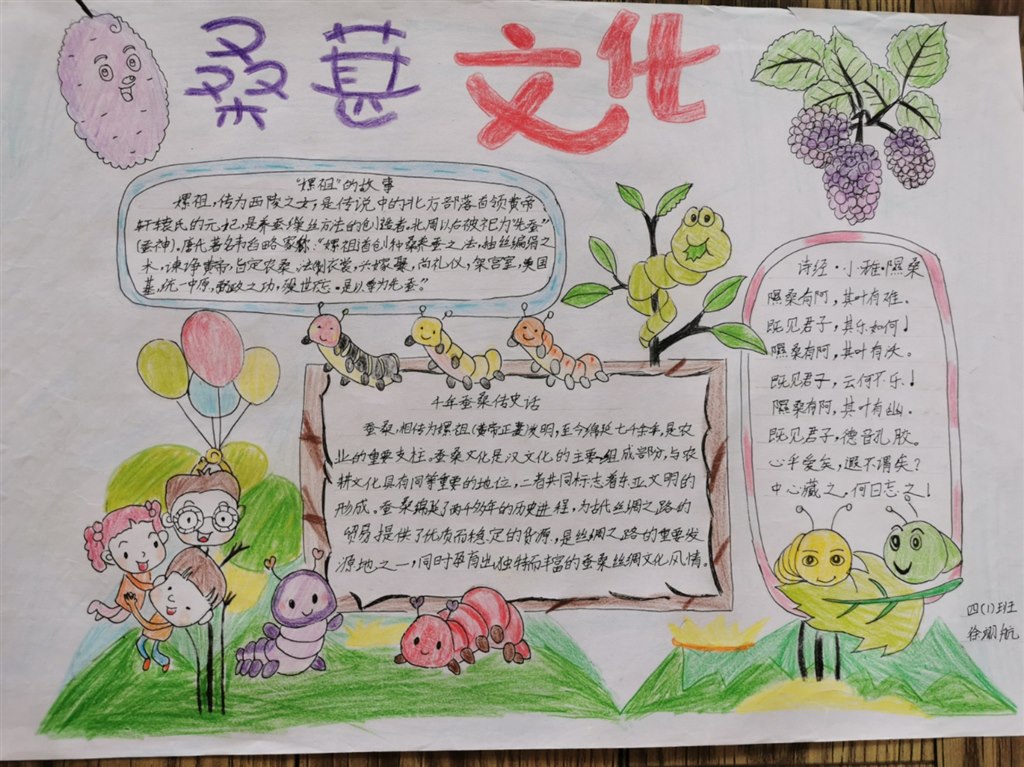 桑葚文化
“嫘祖”的故事
嫘祖，传为西陵之女，是传说中的北方部落首领黄帝
轩辕氏的元妃，是养蚕缫丝方法的创造者，北周以后被祀为“先蚕”
(蚕神)。唐代著名和韬略家称，“嫘祖首创种桑养蚕之法，抽丝编绢之
术，谏诤黄帝，旨定农桑，法制衣裳，兴嫁娶，尚礼仪，架宫室，奠国
基，统一中原，弼政之功，殁世不忘。是以尊为先蚕。”
千年蚕桑佳史话
蚕桑，相传为嫘祖(黄帝正妻)发明，至今绵延七千余年，是农
业的重要支柱。蚕桑文化是汉文化的主要组成部分，与农
耕文化具有同等重要的地位，二者共同标志着东亚文明的
形成。蚕桑绵延了两千多年的历史进程，为古代丝绸之路的
贸易提供了优质而稳定的货源，是丝绸之路的重要发
源地之一，同时孕育出独特而丰富的蚕桑丝绸文化风情。
诗经·小雅·隰桑
隰桑有阿，其叶有难。
既见君子，其乐如何！
隰桑有阿，其叶有沃。
既见君子，云何不乐！
隰桑有阿，其叶有幽。
既见君子，德音孔胶。
心乎爱矣，遐不谓矣？
中心藏之，何日忘之！
四(1)班
徐翊航